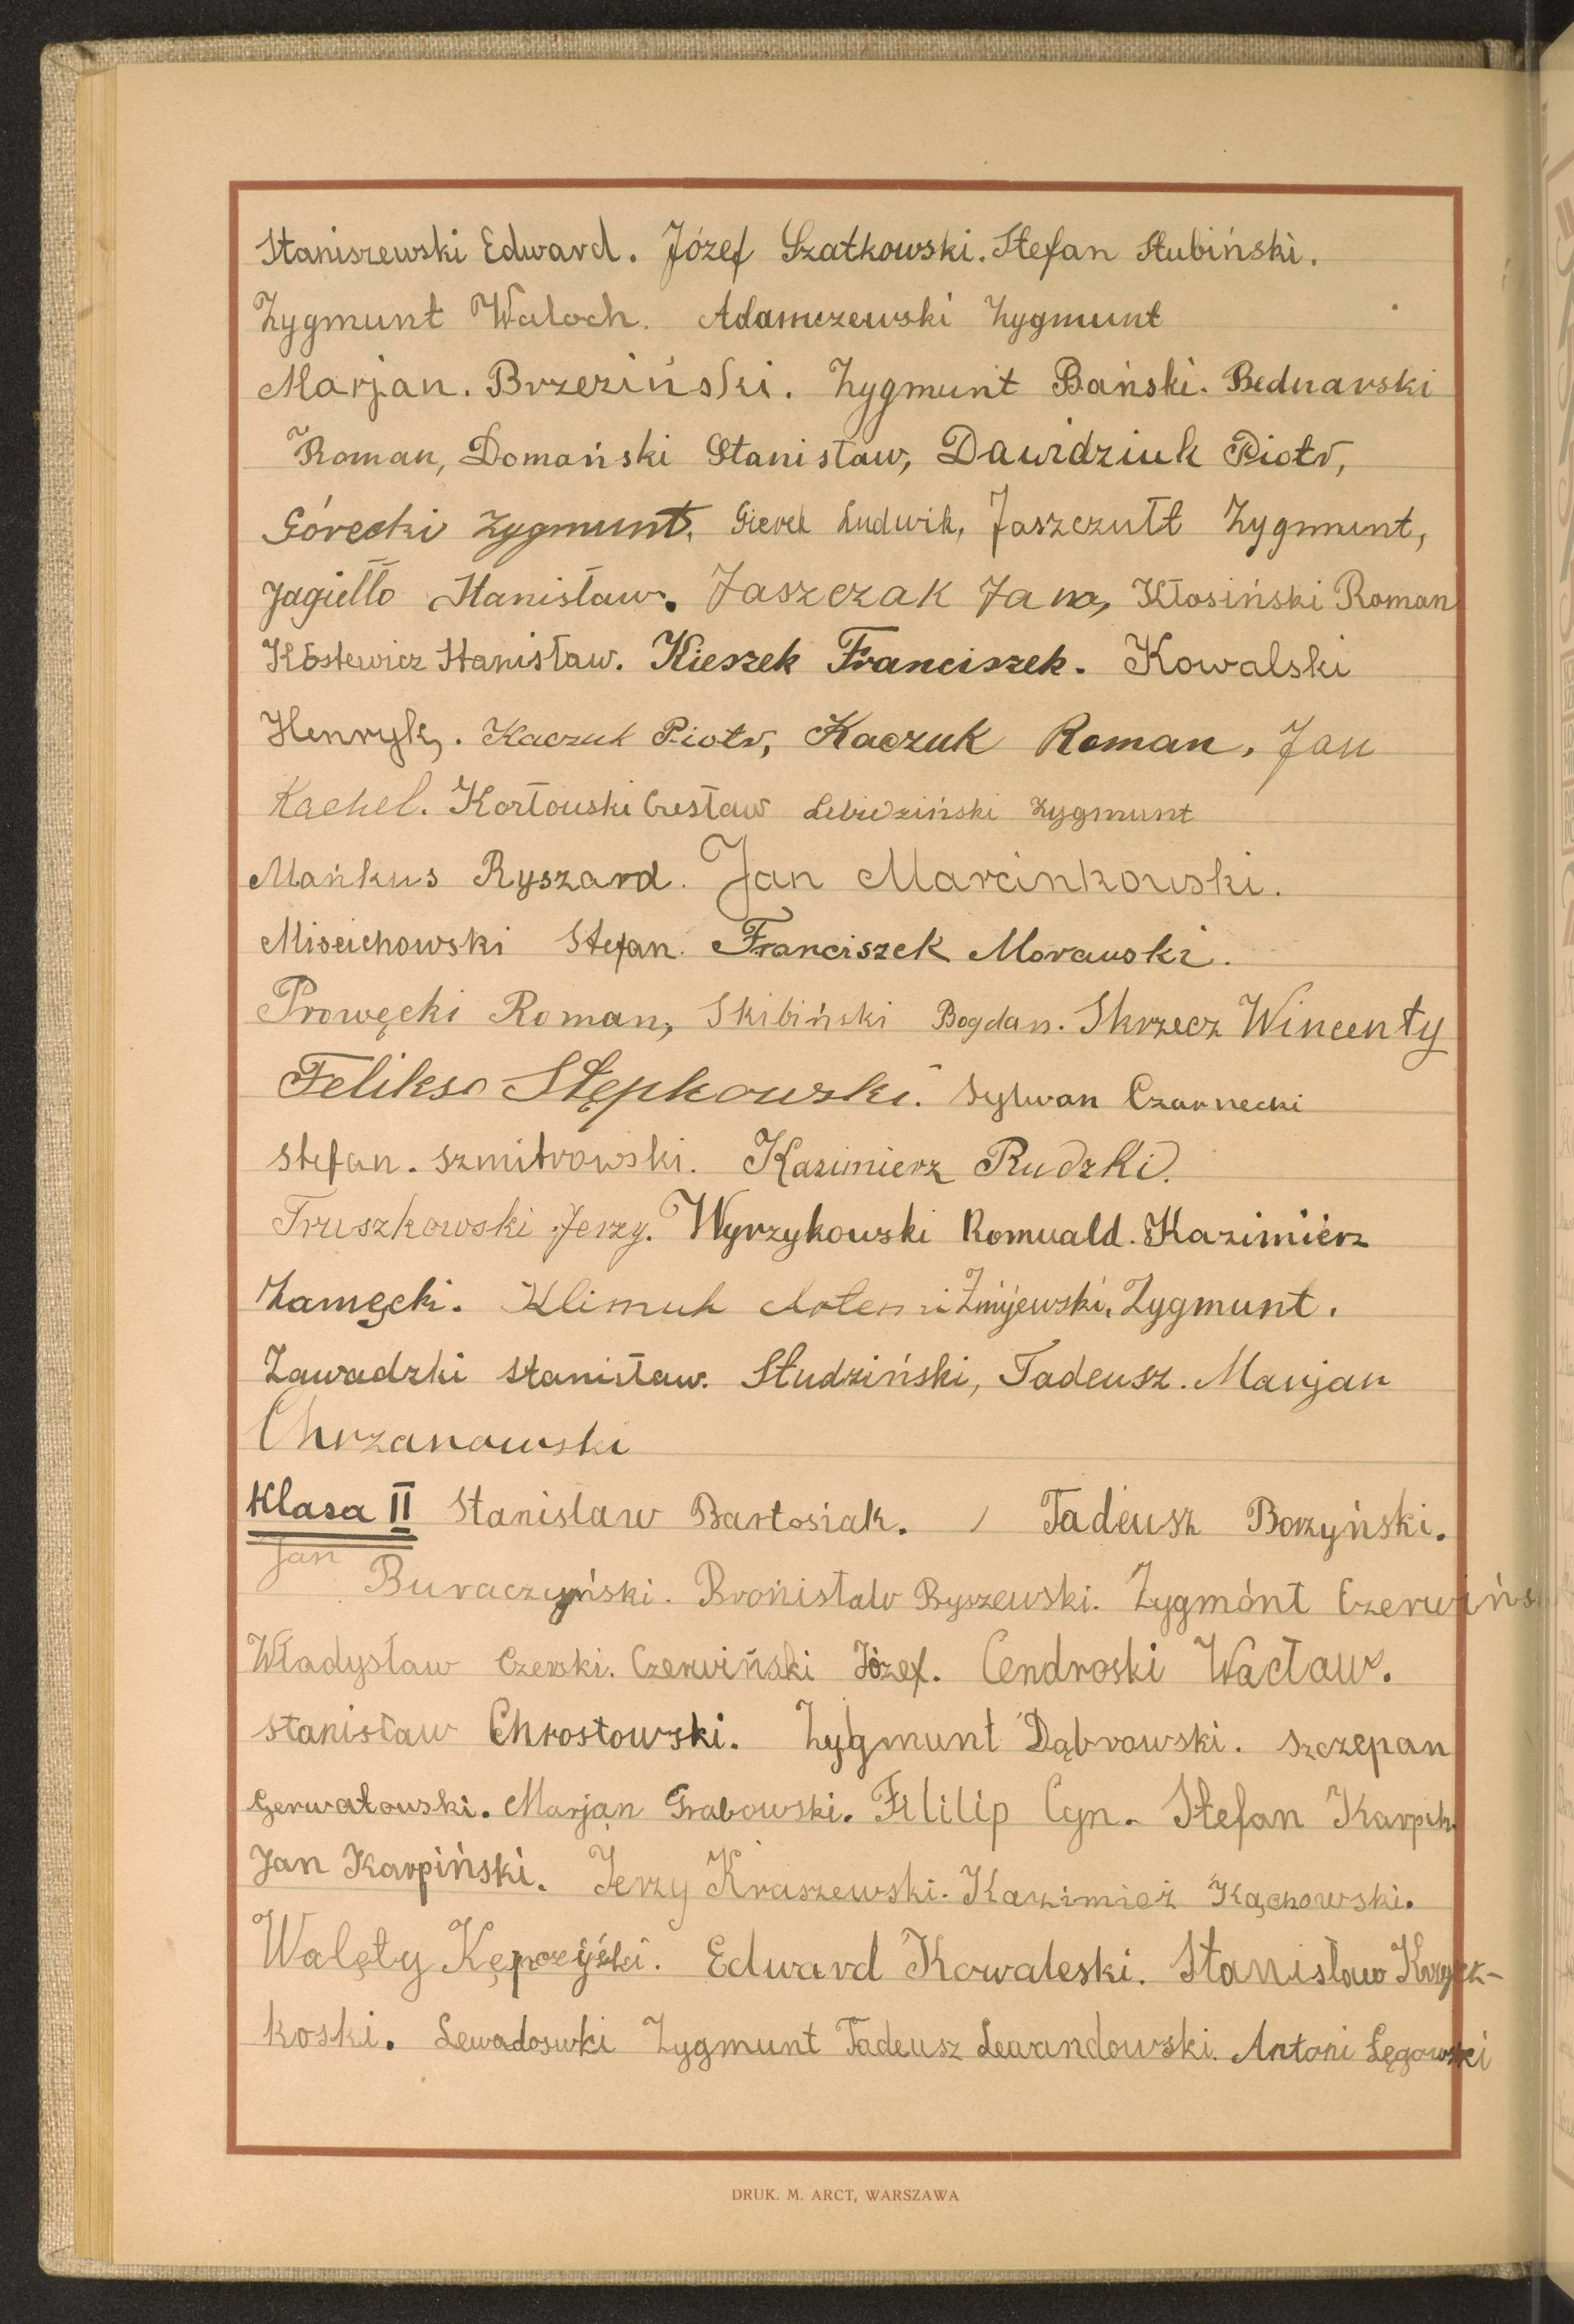 Staniszewski Edward. Józef Szatkowski. Stefan Słubiński.
Zygmunt Waloch. Adamczewski Zygmunt
Marjan. Brzeziński. Zygmunt Bański. Bednarski
Roman, Domański Stanisław, Dawidziuk Piotr,
Górecki Zygmunt, Gierek Ludwik, Jaszczułt Zygmunt,
Jagiełło Stanisław. Jaszczak Jan, Kłosiński Roman
Kostewicz Stanisław. Kieszek Franciszek. Kowalski
Henryk,. Kaczuk Piotr, Kaczuk Roman, Jan
Kachel. Kozłouski Czesław Lebiedziński Zygmunt
Mańkus Ryszard. Jan Marcinkowski.
Miscichowski Stefan. Franciszek Morawski.
Prowęcki Roman, Skibiński Bogdan. Skrzecz Wincenty
Feliks Stępkowski. Sylwan Czarnecki
Stefan. Szmitrowski. Kazimierz Rudzki.
Truszkowski Jerzy. Wyrzykowski Romuald. Kazimierz
Zamęcki. Klimuk Artemi Żmijewski, Zygmunt.
Zawadzki Stanisław. Studziński, Tadeusz. Marjan
Chrzanowski
Klasa II Stanislaw Bartosiak. Tadeusz Borzyński.
Jan
Buraczyński. Bronisław Byszewski. Zygmónt Czerwińs
Władysław Czerski. Czerwiński Józef. Cendroski Wacław.
Stanisław Chrostowski. Zygmunt Dąbrowski. Szczepan
Gerwatouski. Marjan Grabowski. Fililip Cyn. Stefan Karpik.
Jan Karpiński. Jerzy Kraszewski. Kazimież Kąckowski.
Walęty Kępczyński. Edward Kowaleski. Stanisław Krzyczk-
koski. Lewadoswki Zygmunt Tadeusz Lewandowski. Antoni Lęgowski
DRUK. M. ARCT, WARSZAWA